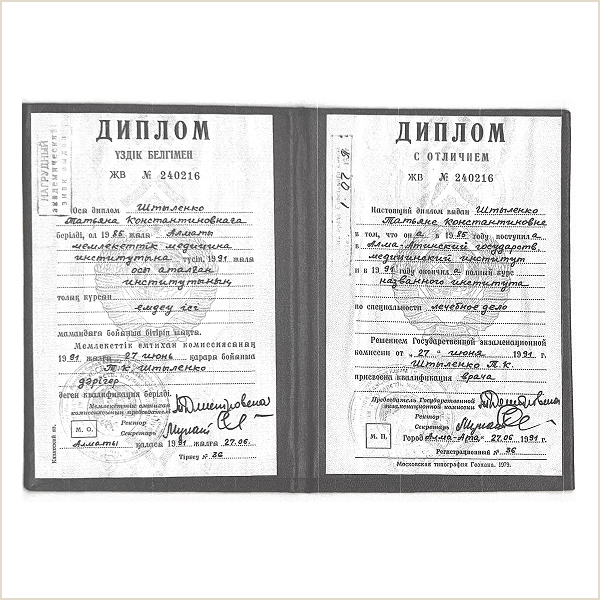 ДИПЛОМ
ҮЗДІК БЕЛГІМЕН
ЖВ № 240216
НАГРУДНЫЙ
академический
знак выдан
Осы диплом Штыленко
Татьяна Константиновнаға
берілді, ол 1985 жалы Алматы
мемлекеттік медицина
институтына түсіп, 1991 жалы
осы аталған
институтының
толық курсын
емдеу ісі
мамандығы бойынша бітіріп шықты.
Мемлекеттік емтихан комиссиясының
1991 жалғы 27 июнь қарары бойынша
Т.К. Штыленко
дәрігер
деген квалификация берілді.
Мемлекеттік емтихан
комиссиясының председателі
Ректор
Секретарь
М. О.
Алматы қаласы 1991 жалғы 27.06.
Тіркеу № 36
Казахский яз.
ДИПЛОМ
С ОТЛИЧИЕМ
ЖВ № 240216
Настоящий диплом выдан Штыленко
Татьяне Константиновне
в том, что она в 1985 году поступила
в Алма-Атинский государств.
медицинский институт
и в 1991 году окончила полный курс
названного института
по специальности лечебное дело
Решением Государственной экзаменационной
комиссии от „27“ июня 1991 г.
Штыленко Т.К.
присвоена квалификация врача
Председатель Государственной
экзаменационной комиссии
Ректор
Секретарь
М. П.
Город Алма-Ата, 27.06 1991 г.
Регистрационный № 36
Московская типография Гознака. 1979.